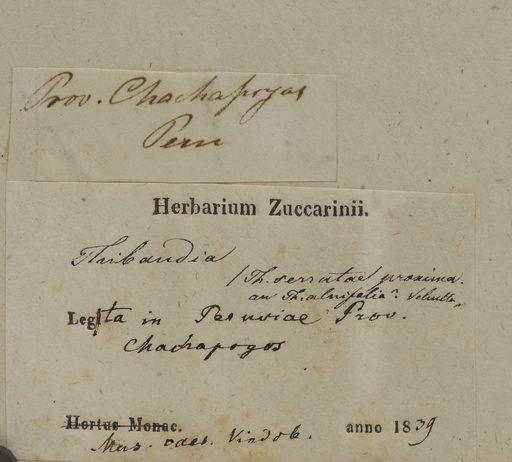 Prov. Chachapoyas
Peru
Herbarium Zuccarinii.
Thibaudia
/ Th. serratae proxima.
an Th. alnifolia?
Legita in Peruviae Prov.
Chachapogos
Hortus Monac. anno 1839
Mus. caes. Vindob.